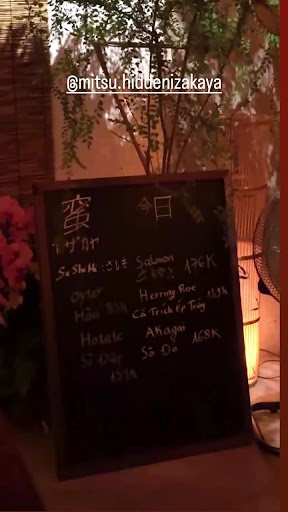 @mitsu.hiddenizakaya
蜜 今日
イザカヤ
SaShiMi : さしみ Salmon 176K
Oyter Herring Roe
Hàu 85K Cá Trích Ép Trứng 159K
Hotate AKagai
Sò Điệp Sò Đỏ 168K
159K